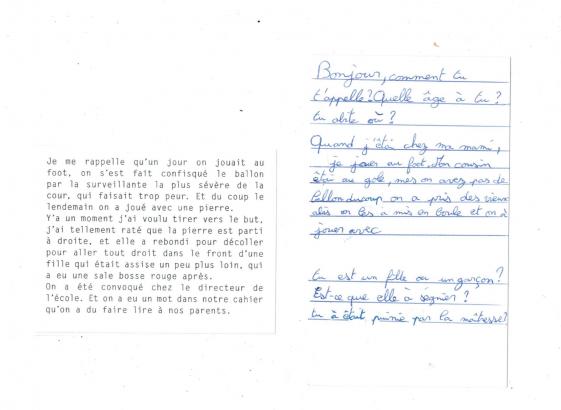 Je me rappelle qu'un jour on jouait au
foot, on s'est fait confisqué le ballon
par la surveillante la plus sévère de la
cour, qui faisait trop peur. Et du coup le
lendemain on a joué avec une pierre.
Y'a un moment j'ai voulu tirer vers le but,
j'ai tellement raté que la pierre est parti
à droite, et elle a rebondi pour décoller
pour aller tout droit dans le front d'une
fille qui était assise un peu plus loin, qui
a eu une sale bosse rouge après.
On a été convoqué chez le directeur de
l'école. Et on a eu un mot dans notre cahier
qu'on a du faire lire à nos parents.
Bonjour, comment tu
t'appelle? Quelle âge à tu?
tu abite où?
Quand j'étai chez ma mami,
je jouer au foot. Mon cousin
étai au gole, mes on avez pas de
ballon ducoup on a pris des vieux
on les a mis en boule et on à
jouer avec
tu est un fille ou un garçon?
Est-ce que elle à ségnier?
tu à était punie par la maîtresse?